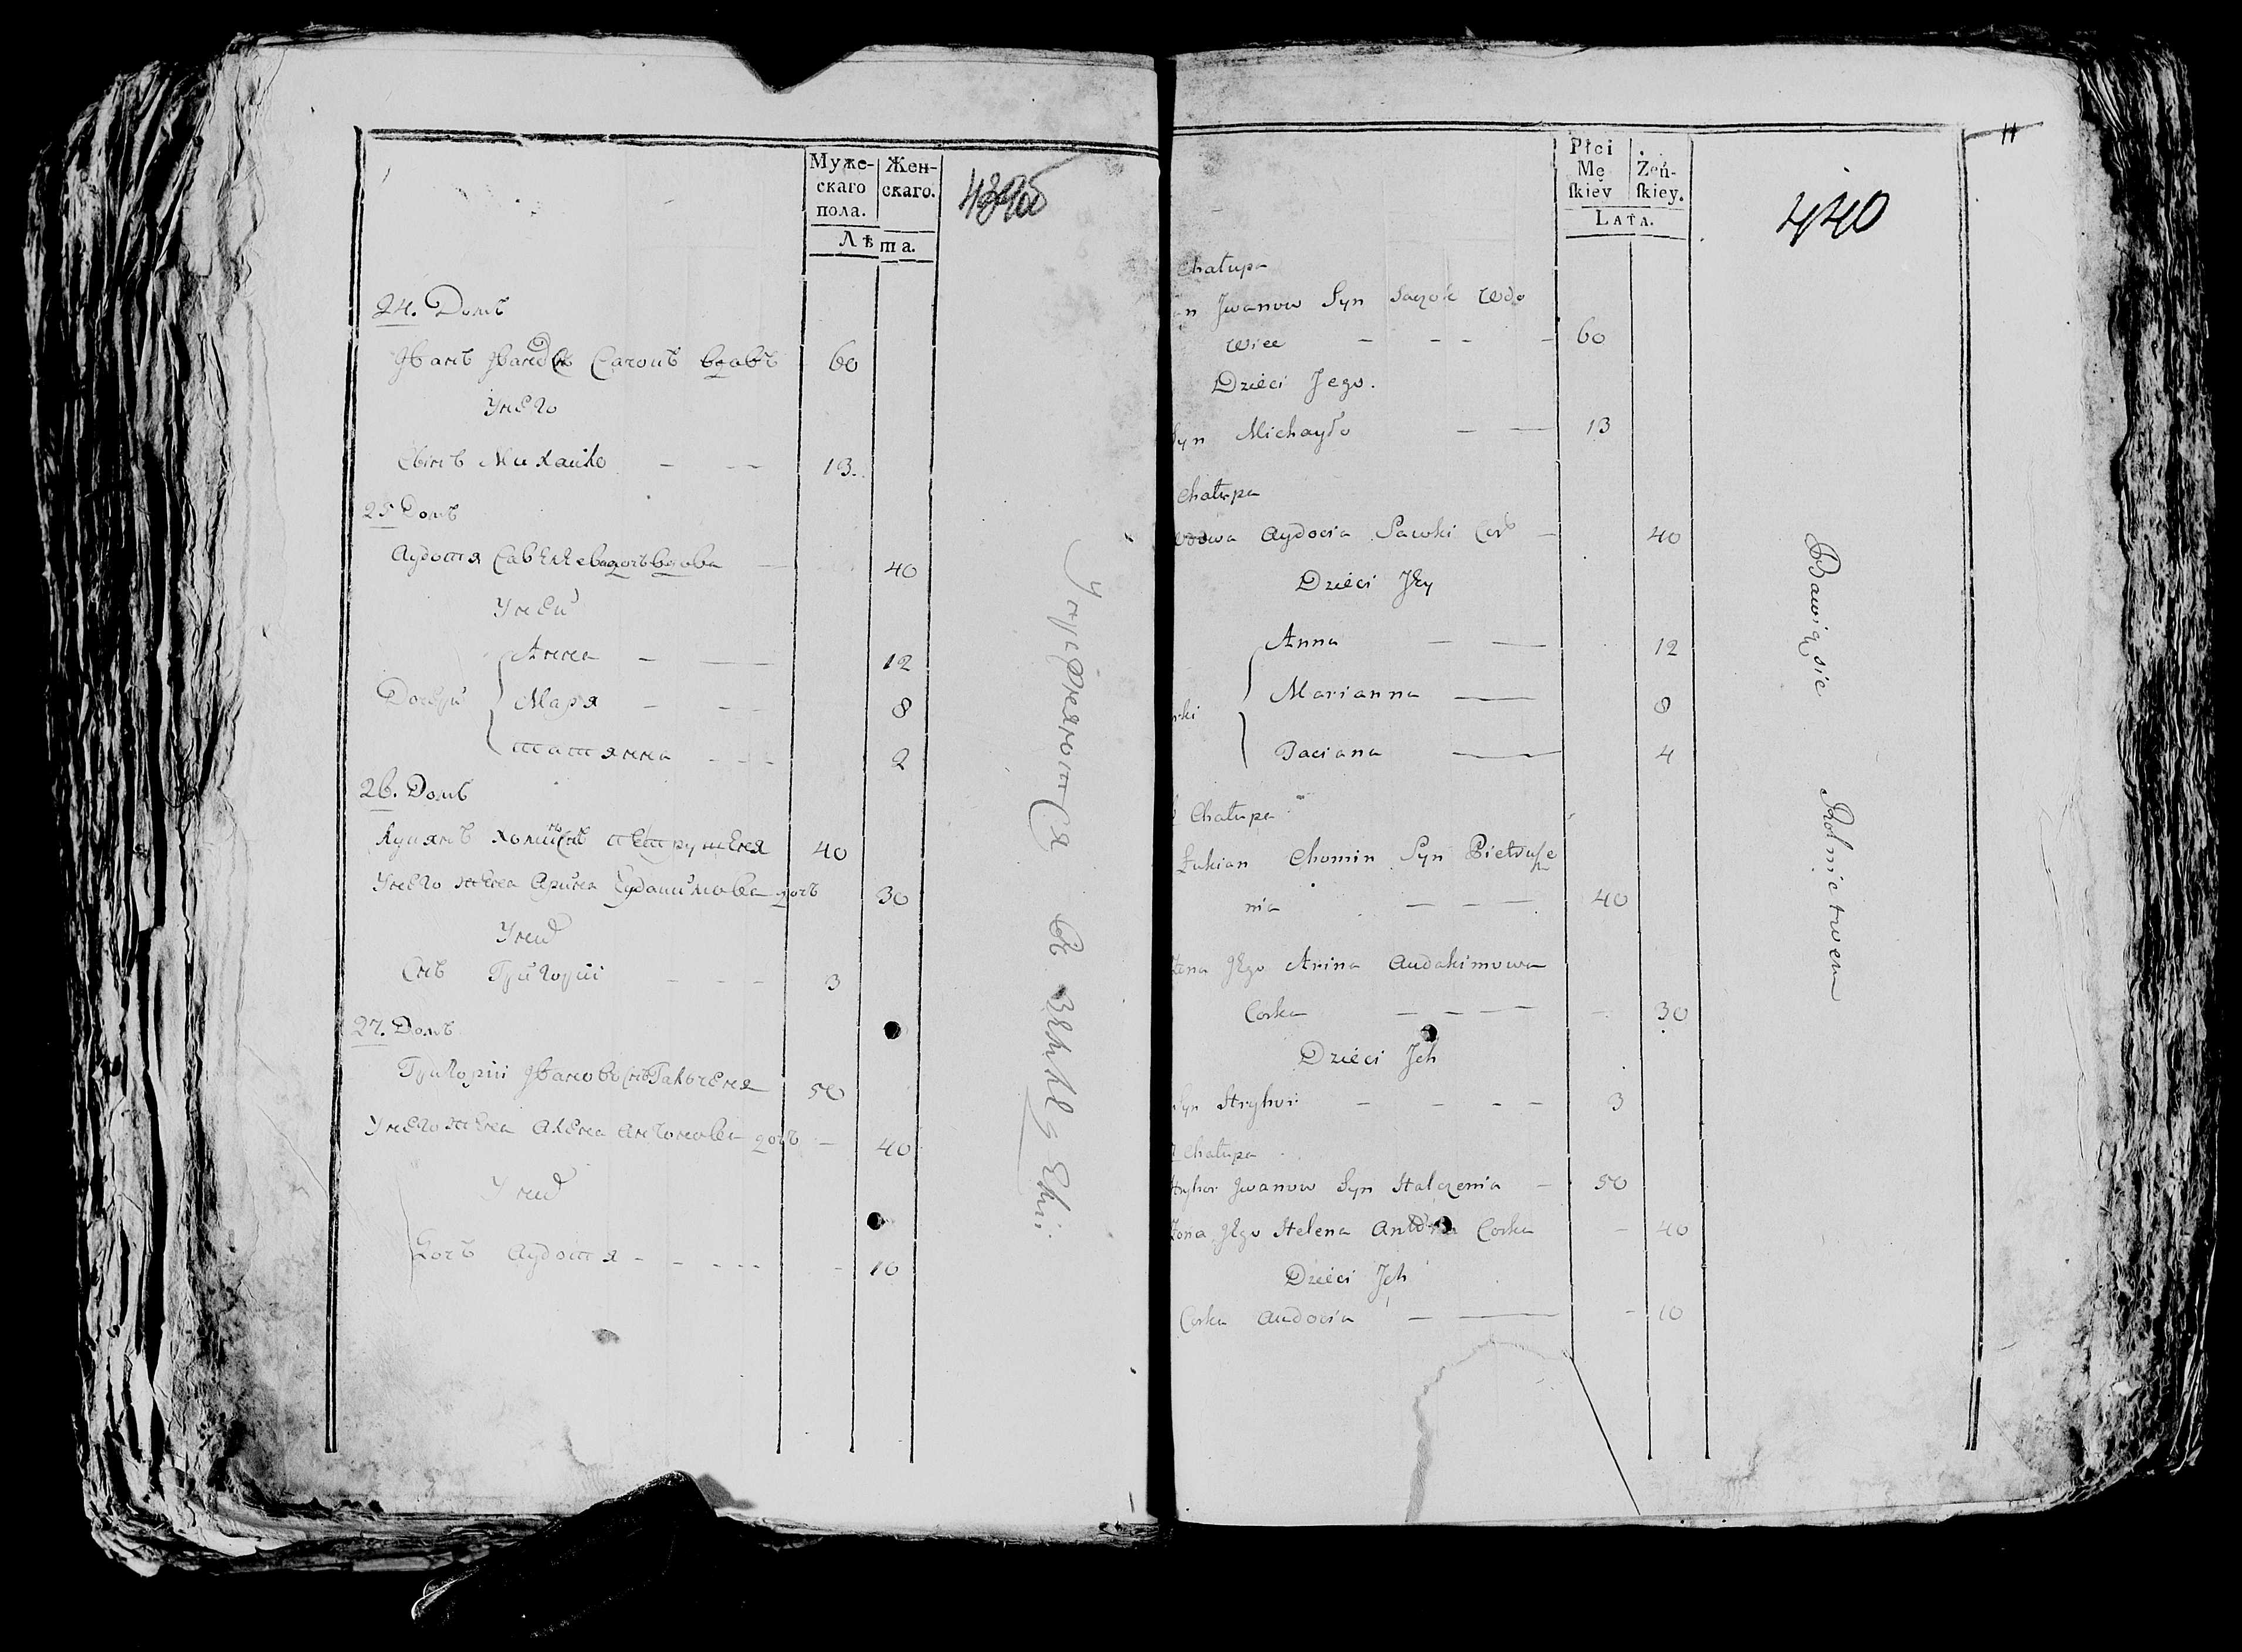 Муже-
скаго
пола.
Жен-
скаго.
Лѣта.
439об
24. Домъ
Иванъ Ивановъ Снъ Сачокъ вдавъ 60
У него
Сынъ Михайло 13.
25 Домъ
Аудотя Савкина дочъ вдова 40
У неи
Анна 12
Дочери Маря 8
татянна 2
26. Домъ
Лукянъ Хоминъ Снъ петрушеня 40
У него жена Арина дочъ 30
У них
Снъ Григорiи 3
27. Домъ
Григорiи Ивановъ Снъ Галченя 50
У него жена Алена Антонова дочъ 40
У них
Дочъ Аудотя 10
Упражняются в
Płci
Mę
ſkiey
Żeń-
ſkiey.
LATA.
440
11
Chałupa
n Jwanow Syn Saczok Wdo
wiec 60
Dzieci Jego.
Syn Michayło 13
Chałupa
Wdowa Aydocia Sawki Cor 40
Dzieci Jey
Anna 12
rki Marianna 8
Taciana 4
Chałupa
Łukian Chomin Syn Pietrusze
nia 40
Żena Jego Arina Audakimowa
Corka 30
Dzieci Jch
Syn Hryhor 3
Chałupa
Hryhor Jwanow Syn Halczenia 50
Żona Jego Helena Corka 40
Dzieci Jch
Corka Audocia 10
Bawią się Rolnictwem